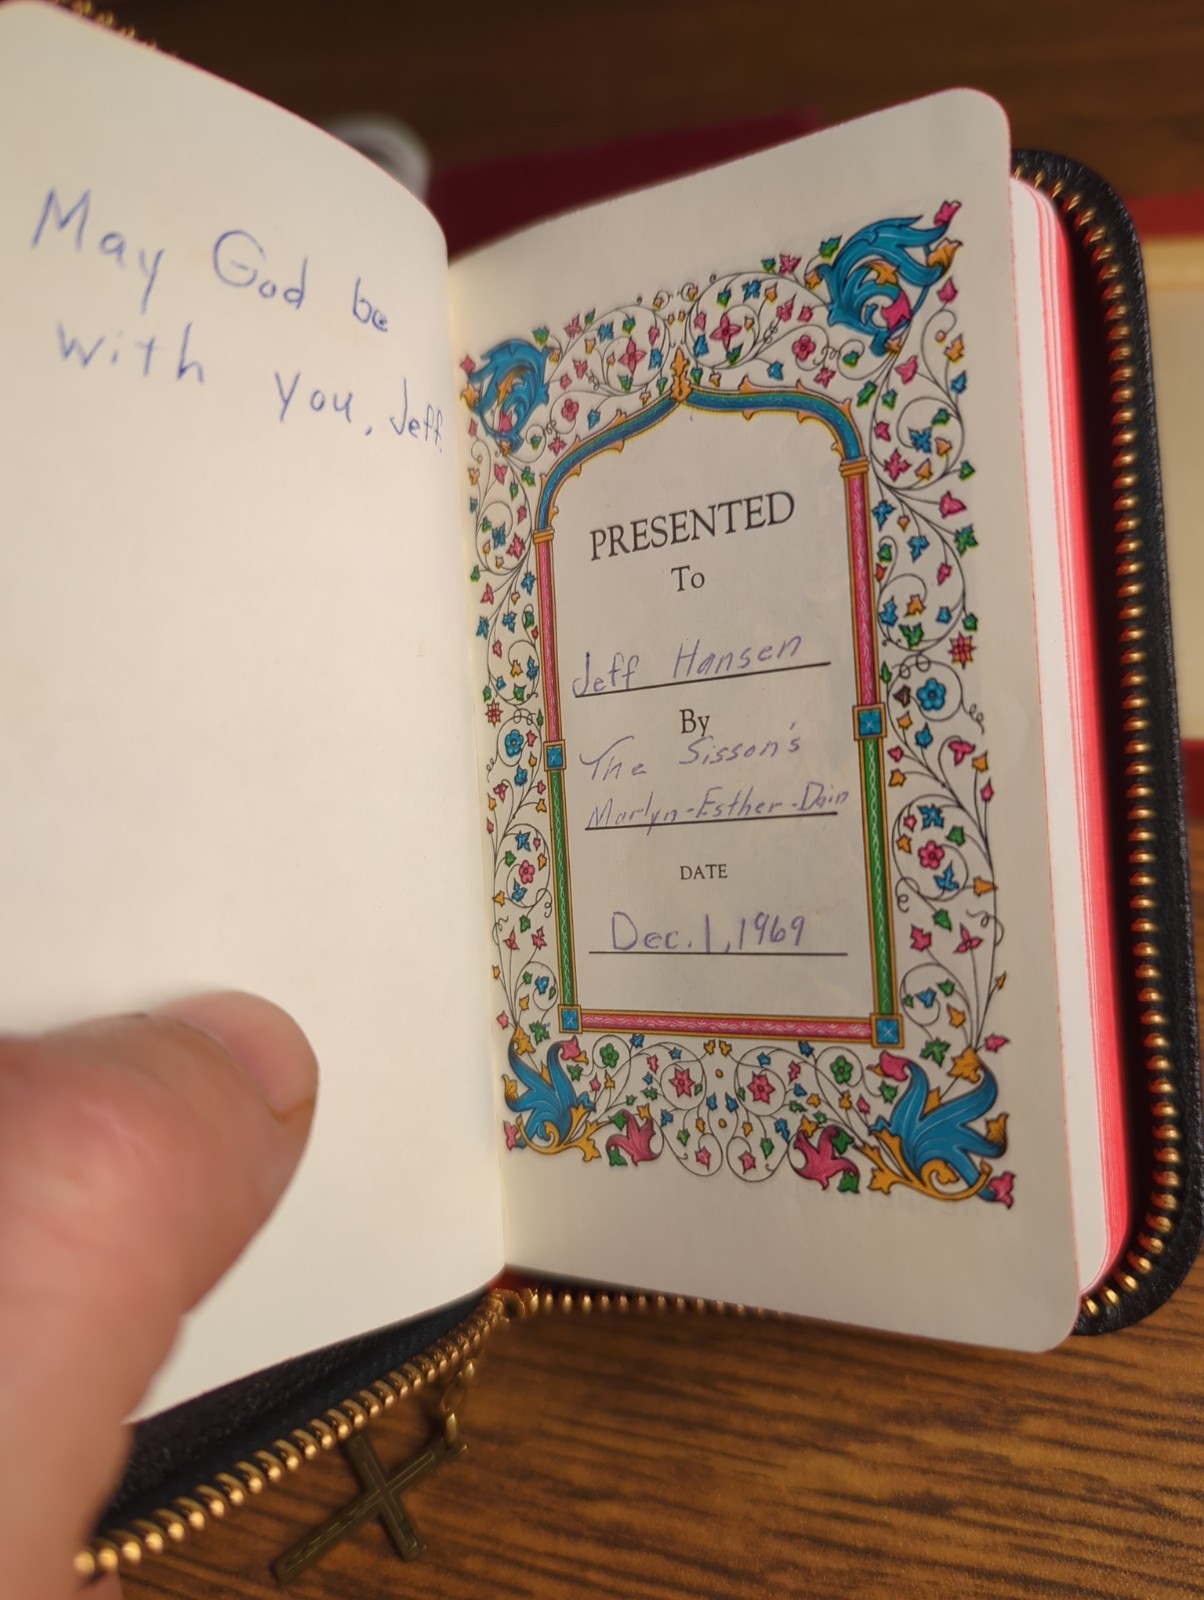 May God be
with you, Jeff
PRESENTED
To
Jeff Hansen
By
The Sisson's
Marlyn-Esther-Dain
DATE
Dec. 1, 1969